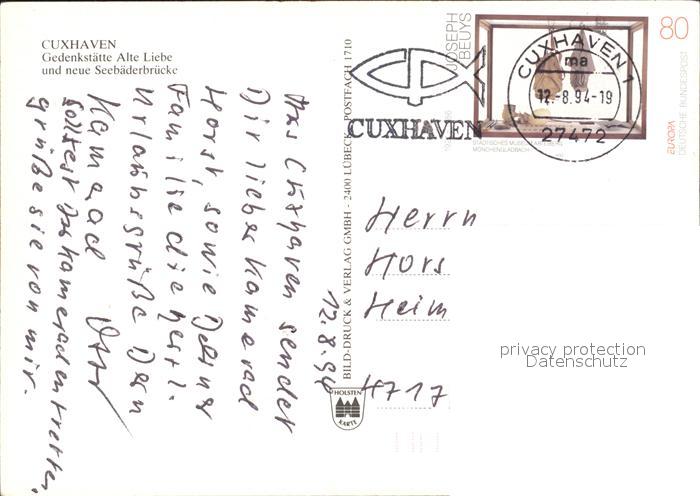 CUXHAVEN
Gedenkstätte Alte Liebe
und neue Seebäderbrücke
12.8.94
Aus Cuxhaven sendet
Dir lieber Kamerad
Horst, sowie Deiner
Familie die herzl.
Urlaubsgrüße Dein
Kamerad Otto
solltest Du Kameraden treffen,
grüße sie von mir.
BILD-DRUCK & VERLAG GMBH - 2400 LÜBECK - POSTFACH 1710
HOLSTEN
KARTE
CUXHAVEN
JOSEPH
BEUYS
80
EUROPA
DEUTSCHE BUNDESPOST
STÄDTISCHES MUSEUM ABTEIBERG
MÖNCHENGLADBACH
CUXHAVEN 1
ma
12.-8.94-19
27472
Herrn
Hors
Heim
4717
privacy protection
Datenschutz